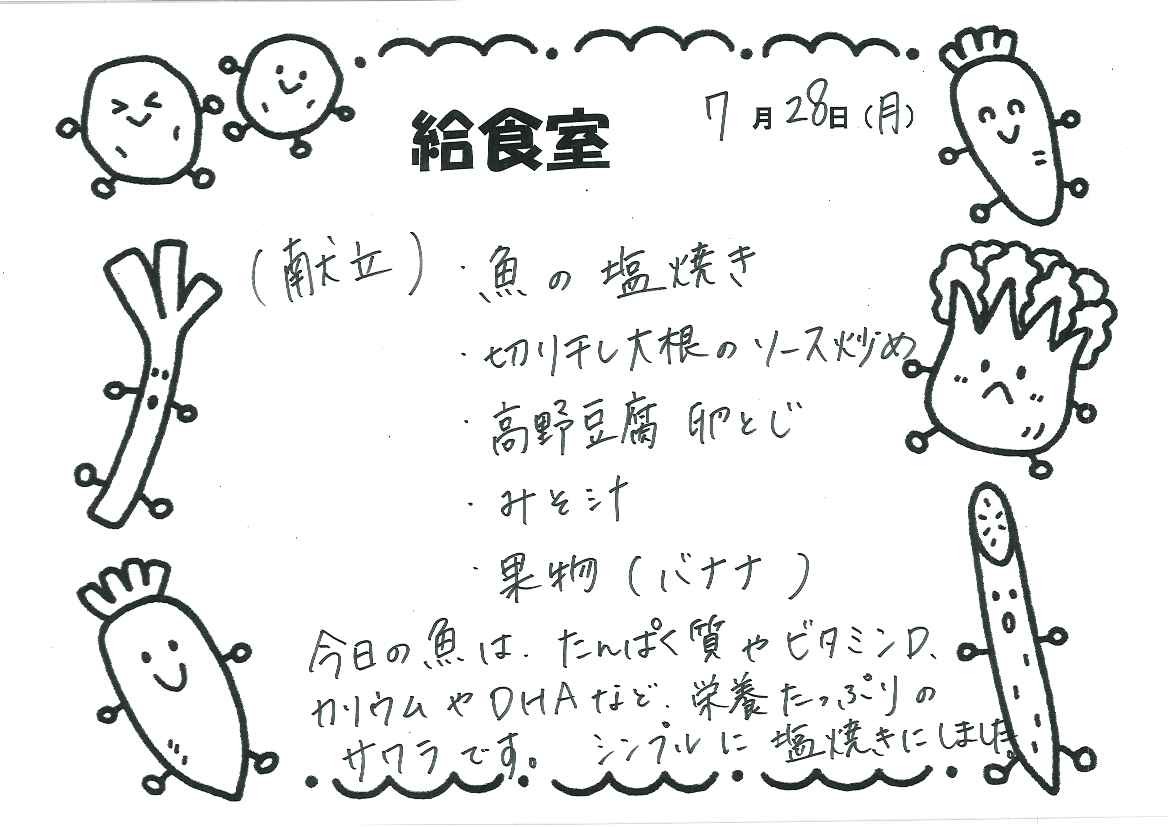 給食室
7月28日(月)
(献立)・魚の塩焼き
・切り干し大根のソース炒め
・高野豆腐 卵とじ
・みそ汁
・果物(バナナ)
今日の魚は、たんぱく質やビタミンD、
カリウムやDHAなど、栄養たっぷりの
サワラです。シンプルに塩焼きにしました。